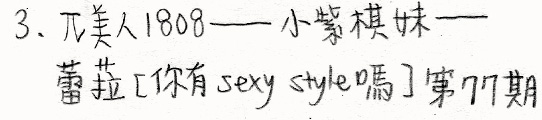 3、兀美人1808——小紫棋妹——
蕾菈[你有sexy style嗎]第77期